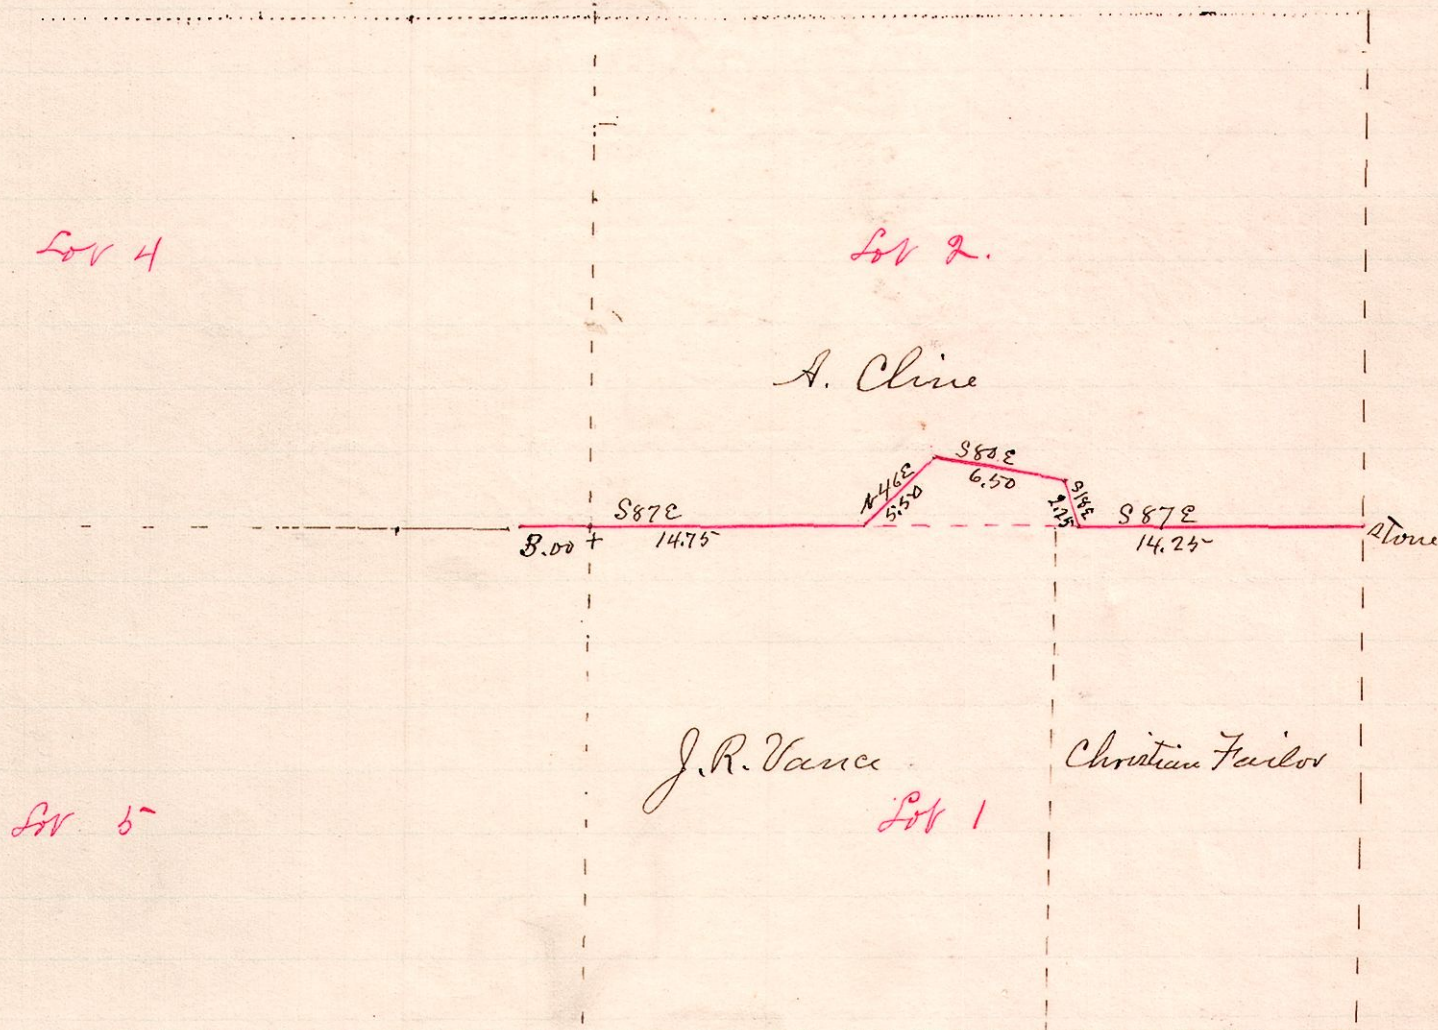 Lot 4
Lot 2.
A. Cline
S80E
6.50
N46E
5.50
S18E
2.75
S87E
14.75
3.00 +
S87E
14.25
Stone
J.R. Vance
Christian Failor
Lot 5
Lot 1